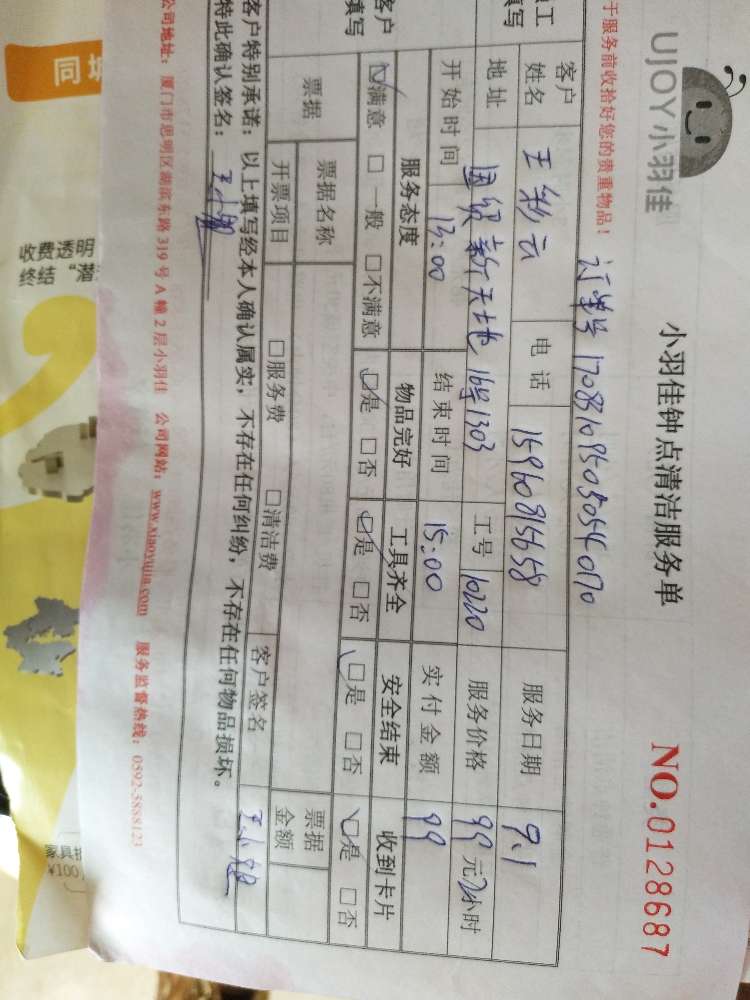 UJOY小羽佳
小羽佳钟点清洁服务单
NO.0128687
于服务前收拾好您的贵重物品！
订单号
客户姓名 王彩云 电话 15960815658 服务日期 9.1
地址 国贸新天地16号1303 工号 10220 服务价格 99元2小时
开始时间 13:00 结束时间 15:00 实付金额 99
客户填写
服务态度 物品完好 工具齐全 安全结束 收到卡片
☑满意 □一般 □不满意 ☑是 □否 ☑是 □否 ☑是 □否 ☑是 □否
票据 票据名称 票据金额
开票项目 □服务费 □清洁费 客户签名
客户特别承诺：以上填写经本人确认属实，不存在任何纠纷，不存在任何物品损坏。
特此确认签名：
公司地址：厦门市思明区湖滨东路319号A幢2层小羽佳 公司网站：www.xiaoyujia.com 服务监督热线：0592-5888123
同城
收费透明
终结
¥100